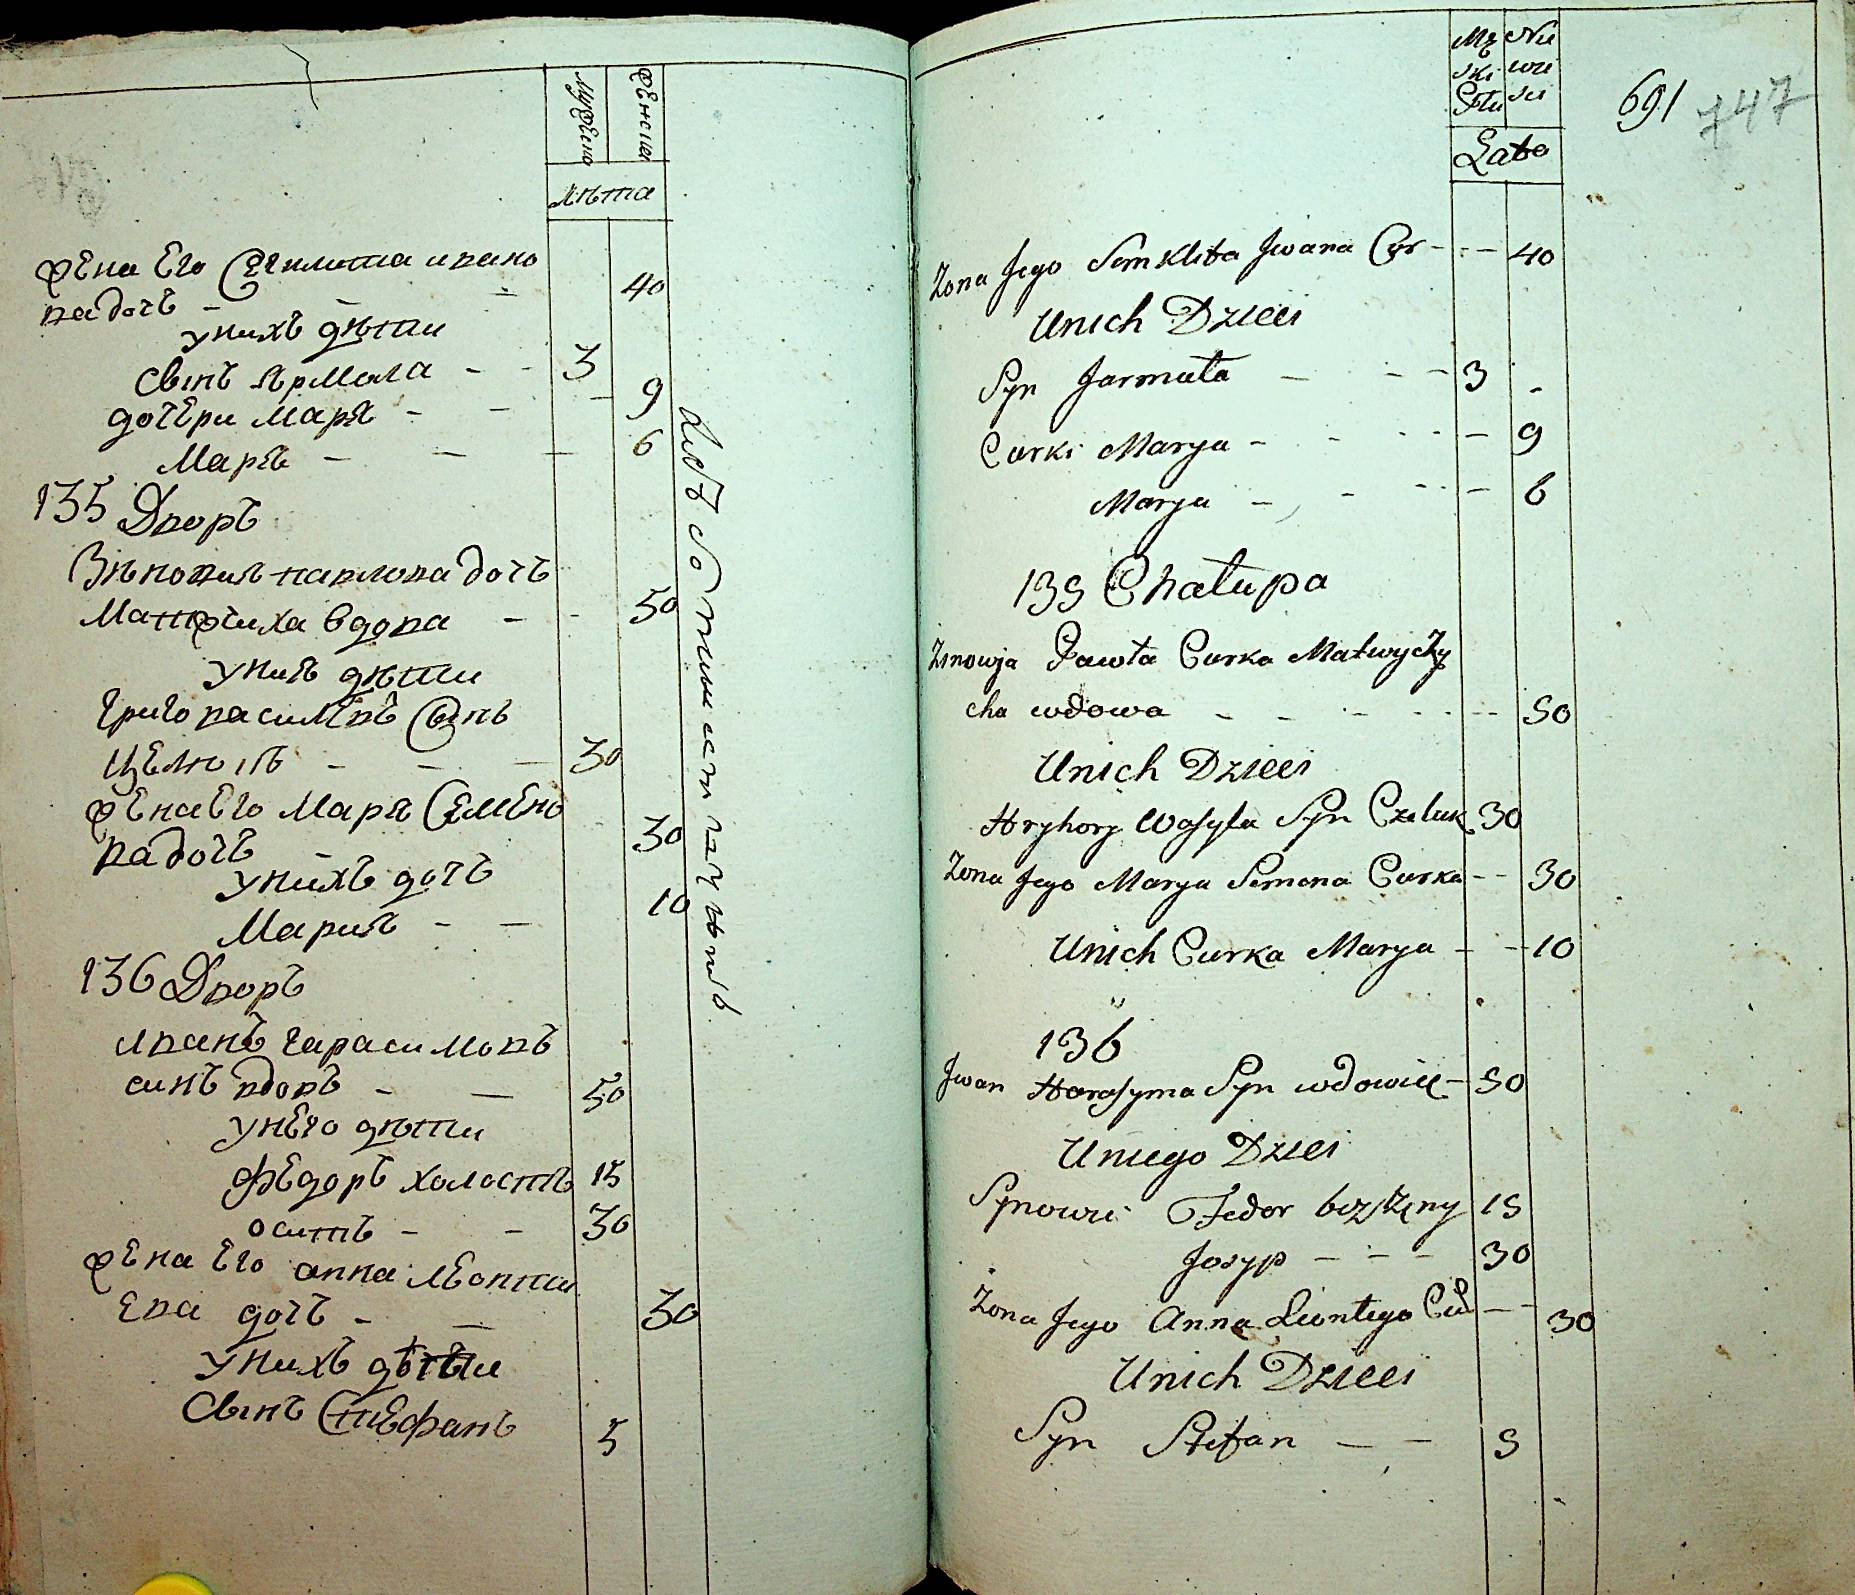 мужеска
женска
лѣта
жена Его Сенклита ивано
ва дочь - - - 40
у нихъ дѣти
Сынъ Ярмола - - 3
дочери Маря - - - 9
Маря - - - 6
135 Дворъ
Зѣновия павлова дочь
Матфеиха вдова - - 50
у ния дѣти
григо василевъ Сынъ
- - - 30
жена Его Маря Семено
ва дочь - 30
у нихъ дочь
Мария - - 10
136 Дворъ
иванъ гарасимовъ
синъ вдовъ - - 50
у нЕго дѣти
федоръ холостъ 15
осипъ - - 30
жена Его анна леонти
Ева дочь - - 30
у нихъ дѣти
Сынъ Стефанъ 5
Mę
ski
Płci
Nie
wie
sci
Lata
691 747
Żona Jego Semklita Jwana Cór - - - 40
Unich Dzieci
Syn Jarmuła - - - 3 -
Curki Marya - - - - - 9
Marya - - - - 6
135 Chałupa
Zinowja Pawła Curka Matwyczy
cha wdowa - - - - - - 50
Unich Dzieci
Hryhory Wasyla Syn Czeluk 30
Żona Jego Marya Semena Curka - - 30
Unich Curka Marya - - 10
136
Jwan Harasyma Syn wdowiec - 50
Uniego Dzieci
Synowie Fedor bezżenny 15
Josyp - - - 30
Żona Jego Anna Leontego - - 30
Unich Dzieci
Syn Stefan - - 5